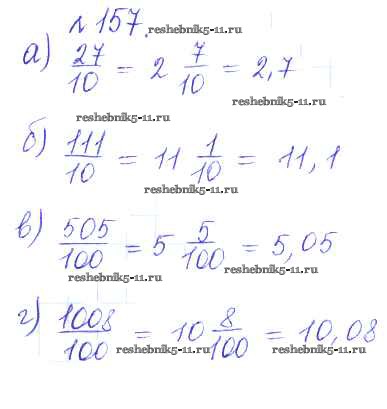 №157.
reshebnik5-11.ru
а) 27/10 = 2 7/10 = 2,7
reshebnik5-11.ru
reshebnik5-11.ru
б) 111/10 = 11 1/10 = 11,1
reshebnik5-11.ru
в) 505/100 = 5 5/100 = 5,05
reshebnik5-11.ru
reshebnik5-11.ru
г) 1008/100 = 10 8/100 = 10,08
reshebnik5-11.ru
reshebnik5-11.ru